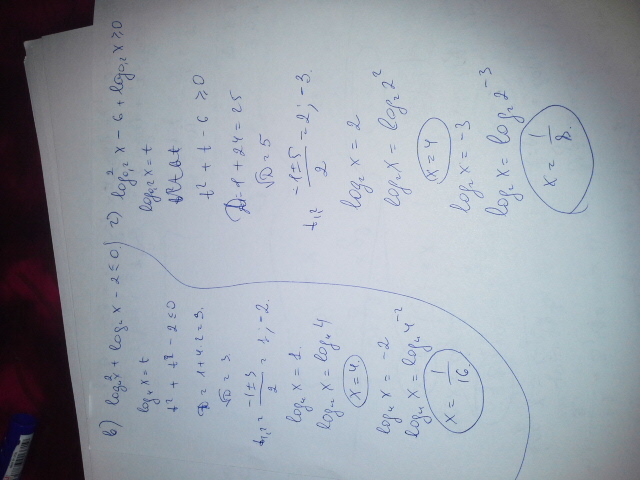 в) log₄²x + log₄x - 2 ≤ 0
log₄x = t
t² + t - 2 ≤ 0
D = 1 + 4·2 = 3.
√D = 3
t₁,₂ = (-1±3)/2 = 1; -2.
log₄x = 1.
log₄x = log₄4
x = 4.
log₄x = -2
log₄x = log₄4⁻²
x = 1/16
г) log₀,₂²x - 6 + log₀,₂x ≥ 0
log₀,₂x = t
t² + t - 6 ≥ 0
D = 1 + 24 = 25
√D = 5
t₁,₂ = (-1±5)/2 = 2; -3.
log₂x = 2
log₂x = log₂2²
x = 4
log₂x = -3
log₂x = log₂2⁻³
x = 1/8.